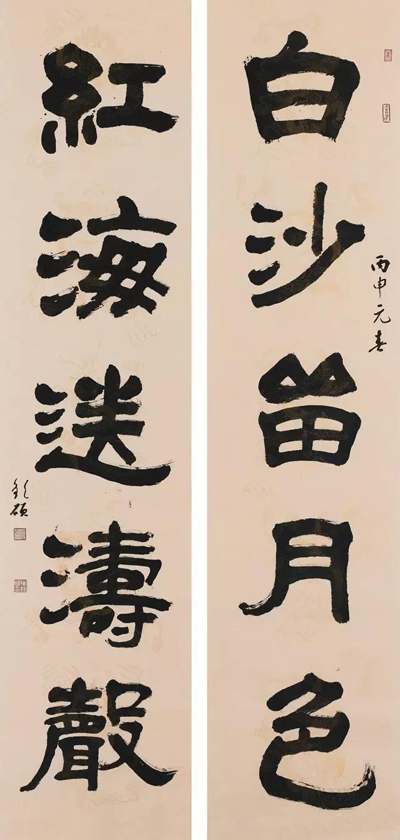 白沙畄月色
丙申元春
紅海送濤聲